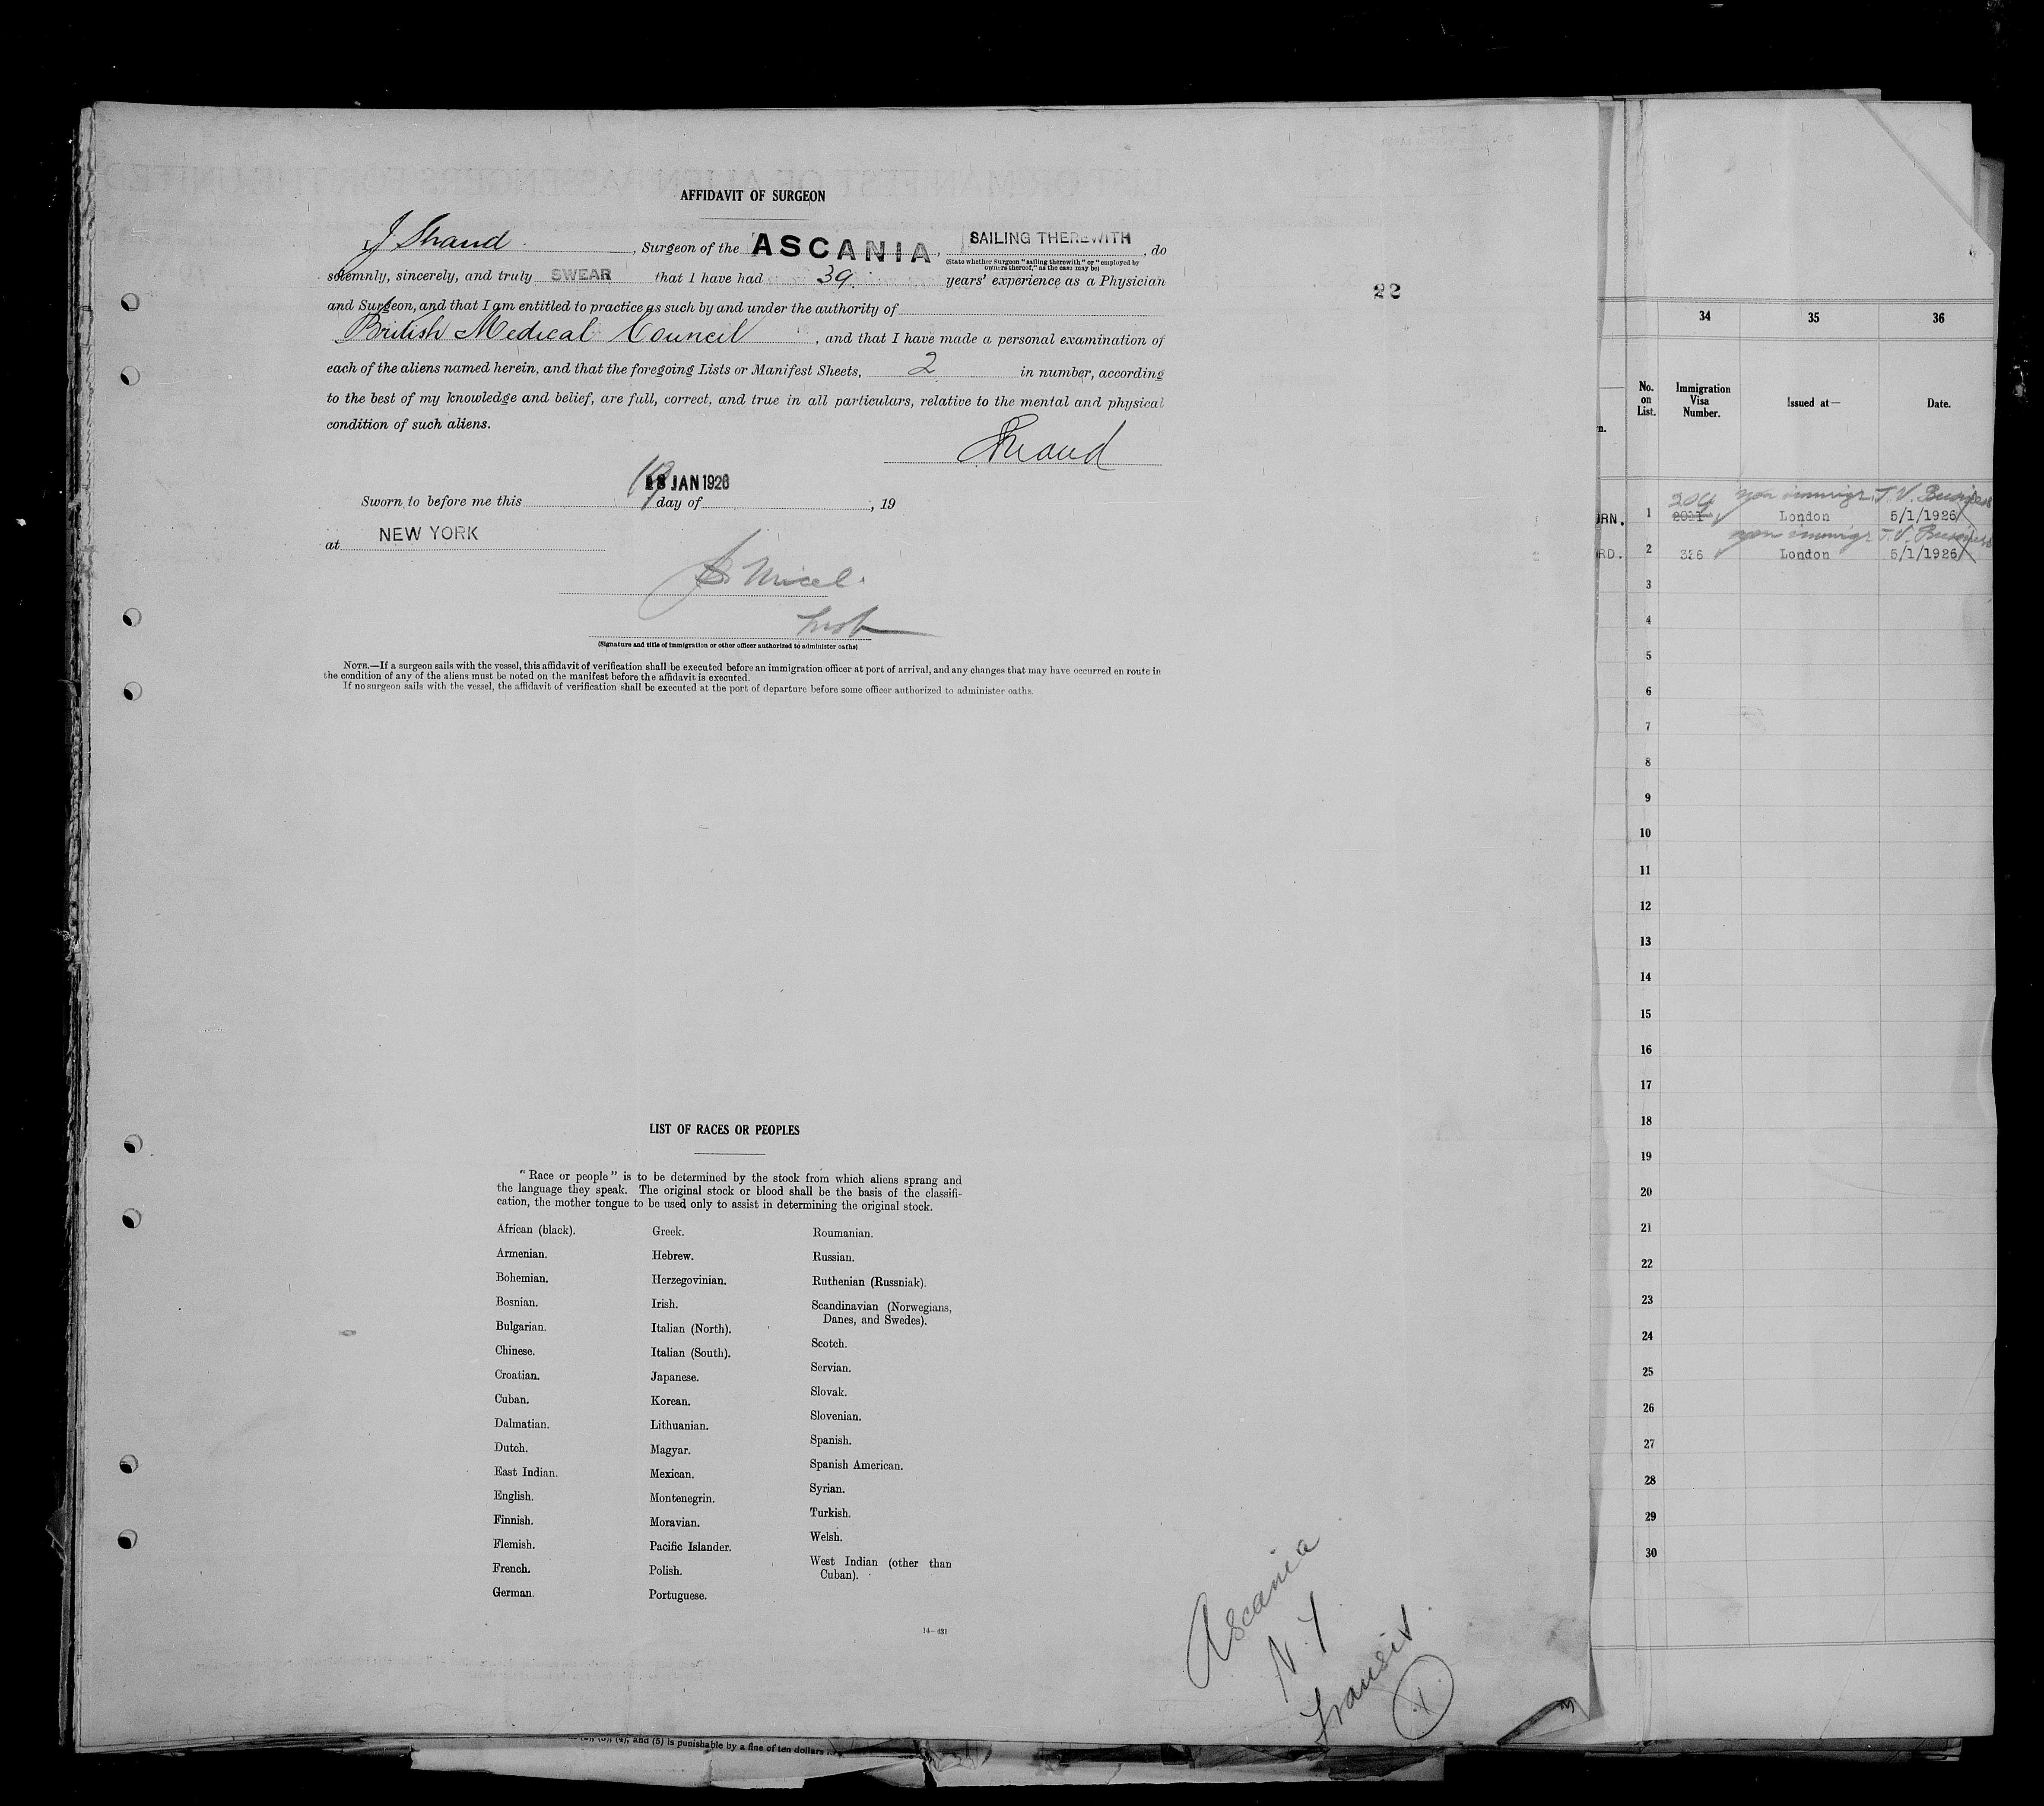 AFFIDAVIT OF SURGEON
I, J Shand, Surgeon of the ASCANIA, SAILING THEREWITH, do
(State whether Surgeon "sailing therewith" or "employed by
owners thereof," as the case may be)
solemnly, sincerely, and truly SWEAR that I have had 39 years' experience as a Physician
and Surgeon, and that I am entitled to practice as such by and under the authority of
British Medical Council, and that I have made a personal examination of
each of the aliens named herein, and that the foregoing Lists or Manifest Sheets, 2 in number, according
to the best of my knowledge and belief, are full, correct, and true in all particulars, relative to the mental and physical
condition of such aliens.
Shand
JAN 1926
Sworn to before me this day of , 19
at NEW YORK
(Signature and title of immigration or other officer authorized to administer oaths)
NOTE.—If a surgeon sails with the vessel, this affidavit of verification shall be executed before an immigration officer at port of arrival, and any changes that may have occurred en route in
the condition of any of the aliens must be noted on the manifest before the affidavit is executed.
If no surgeon sails with the vessel, the affidavit of verification shall be executed at the port of departure before some officer authorized to administer oaths.
22
LIST OF RACES OR PEOPLES
"Race or people" is to be determined by the stock from which aliens sprang and
the language they speak. The original stock or blood shall be the basis of the classifi-
cation, the mother tongue to be used only to assist in determining the original stock.
African (black).
Armenian.
Bohemian.
Bosnian.
Bulgarian.
Chinese.
Croatian.
Cuban.
Dalmatian.
Dutch.
East Indian.
English.
Finnish.
Flemish.
French.
German.
Greek.
Hebrew.
Herzegovinian.
Irish.
Italian (North).
Italian (South).
Japanese.
Korean.
Lithuanian.
Magyar.
Mexican.
Montenegrin.
Moravian.
Pacific Islander.
Polish.
Portuguese.
Roumanian.
Russian.
Ruthenian (Russniak).
Scandinavian (Norwegians,
Danes, and Swedes).
Scotch.
Servian.
Slovak.
Slovenian.
Spanish.
Spanish American.
Syrian.
Turkish.
Welsh.
West Indian (other than
Cuban).
14—431
Ascania
N. Y
Transit
1
(4), and (5) is punishable by a fine of ten dollars
34 35 36
No. on List. Immigration Visa Number. Issued at— Date.
204 non immigr. T. V. Business
URN. 1 2011 London 5/1/1926
non immigr T. V. Business
RD. 2 336 London 5/1/1926
3
4
5
6
7
8
9
10
11
12
13
14
15
16
17
18
19
20
21
22
23
24
25
26
27
28
29
30